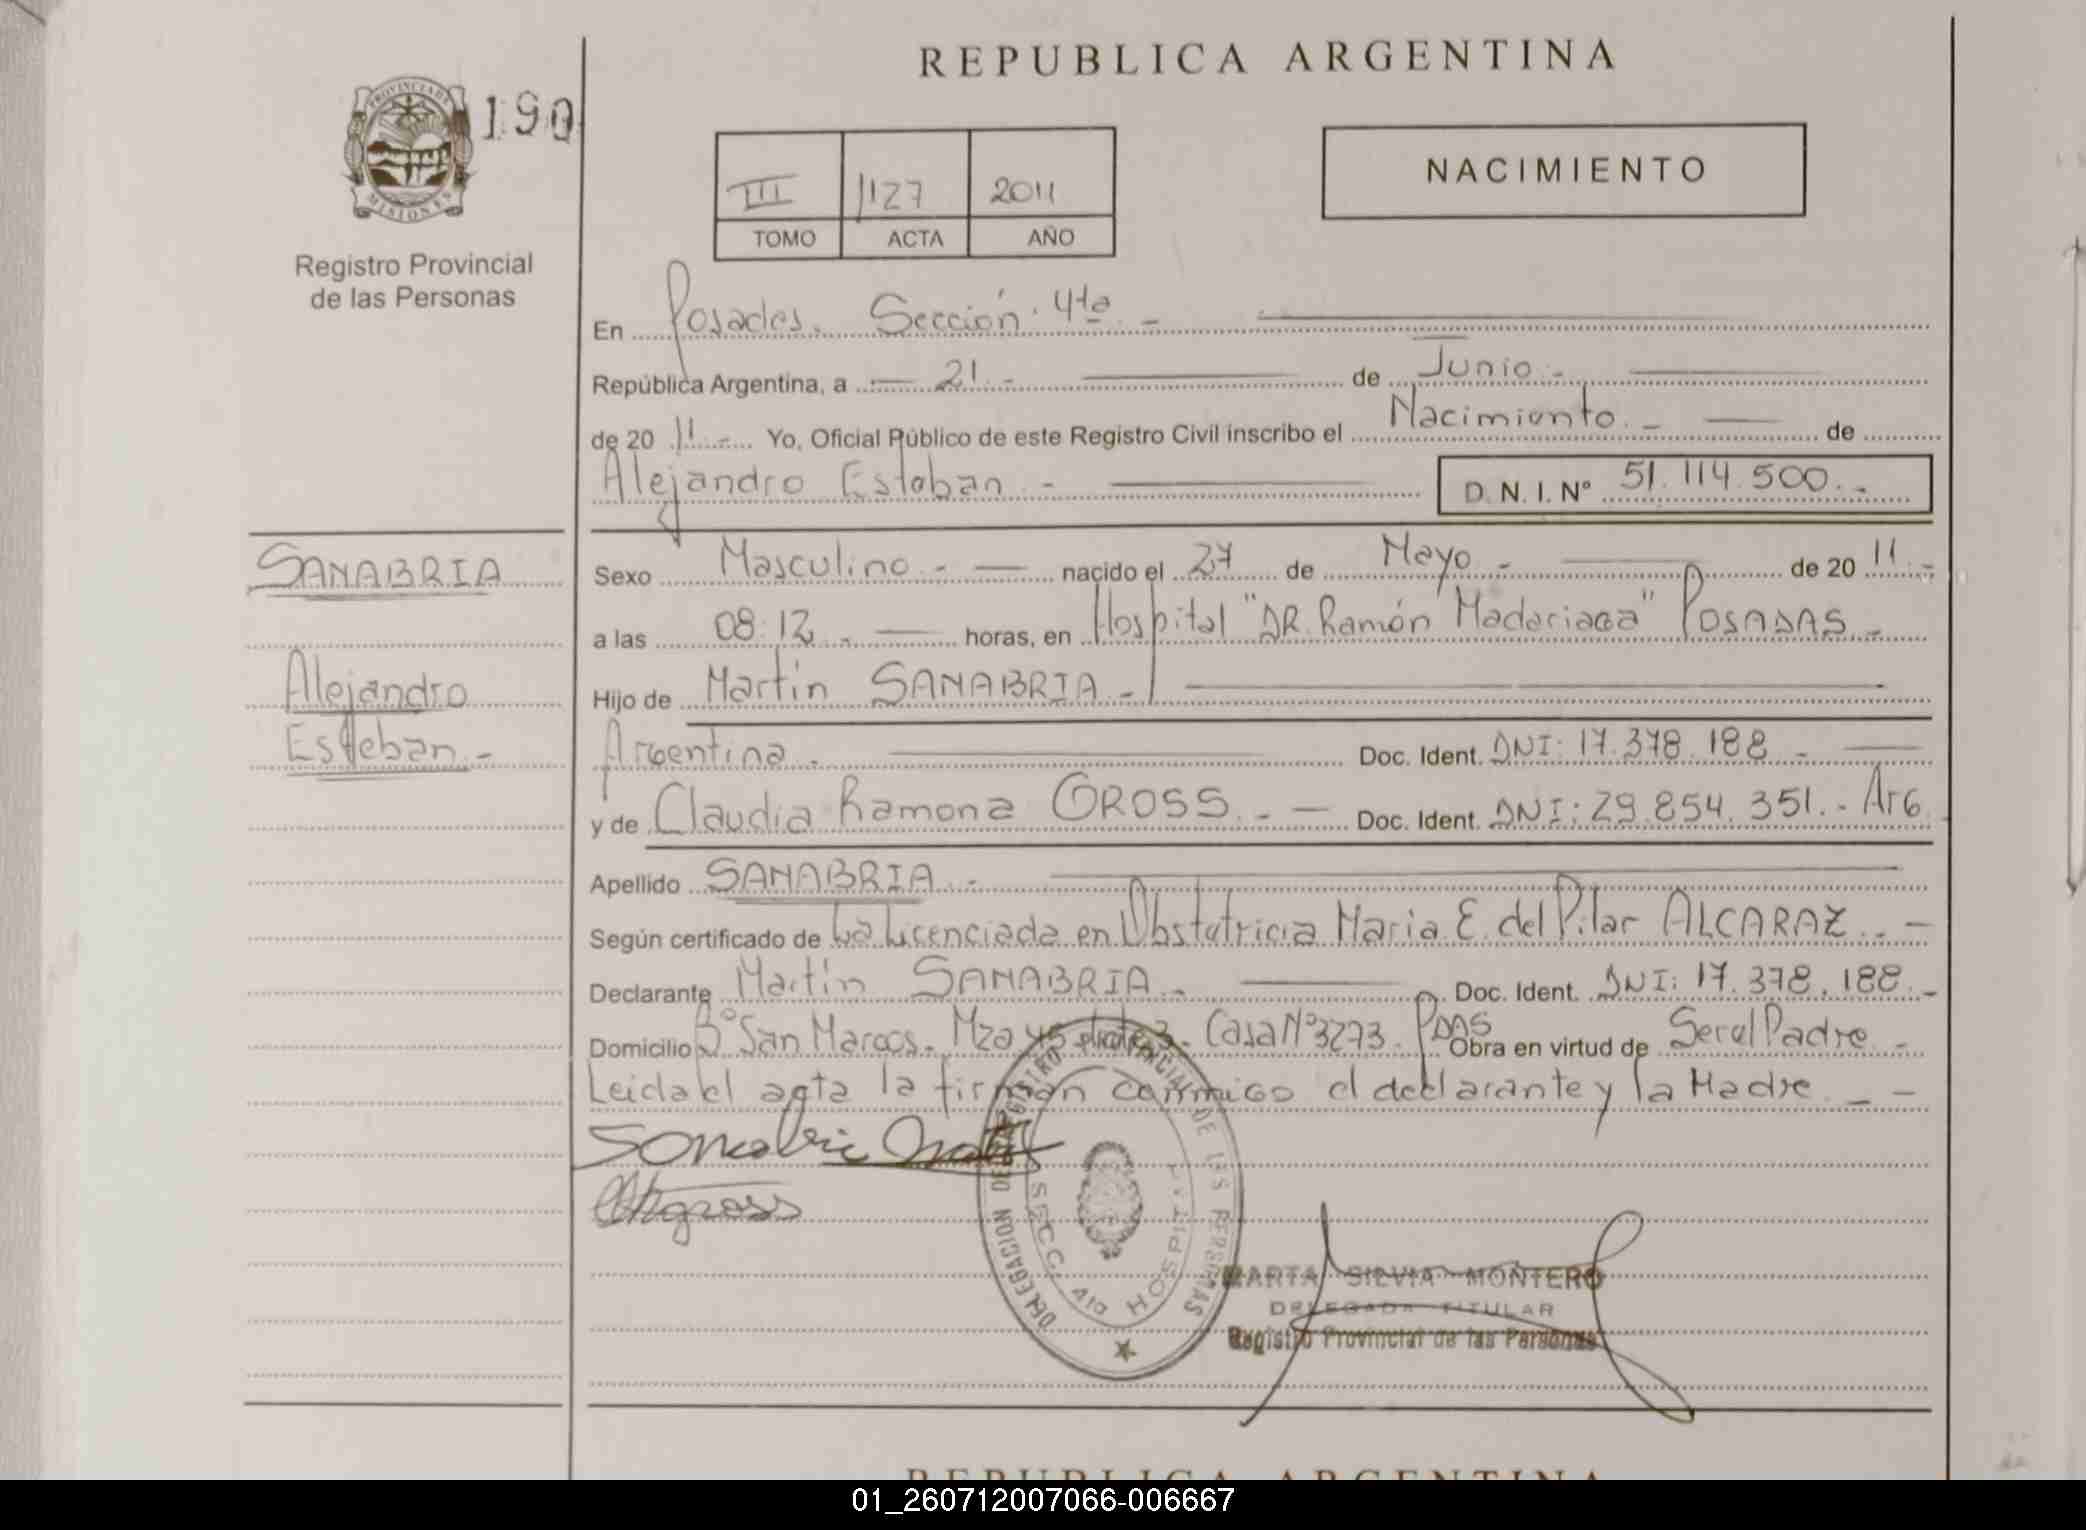 REPUBLICA ARGENTINA
PROVINCIA DE
MISIONES
190
Registro Provincial
de las Personas
III 1127 2011
TOMO ACTA AÑO
NACIMIENTO
En Posadas. Sección 4ta. -
República Argentina, a - 21. - de Junio. -
de 20 11. - Yo, Oficial Público de este Registro Civil inscribo el Nacimiento. - de
Alejandro Esteban. - D. N. I. Nº 51.114.500. -
SANABRIA
Alejandro
Esteban. -
Sexo Masculino. - nacido el 27 de Mayo - de 20 11. -
a las 08:12. - horas, en Hospital "DR. Ramón Madariaga" POSADAS. -
Hijo de Martín SANABRIA. -
Argentina. Doc. Ident. DNI: 17.378.188 -
y de Claudia Ramona GROSS. - Doc. Ident. DNI: 29.854.351. - Arg.
Apellido SANABRIA. -
Según certificado de La Licenciada en Obstetricia Maria E. del Pilar ALCARAZ. -
Declarante Martín SANABRIA. - Doc. Ident. DNI: 17.378.188. -
Domicilio Bº San Marcos. Mza 45 Casa Nº 3273. Pdas Obra en virtud de Ser el Padre -
Leida el acta la firman conmigo el declarante y la Madre. -
Sanabria Martin
CRgross
DELEGACION REGISTRO PROVINCIAL DE LAS PERSONAS
SECC. 4ta HOSPITAL
MARTA SILVIA MONTERO
DELEGADA TITULAR
Registro Provincial de las Personas
REPUBLICA ARGENTINA
01_260712007066-006667